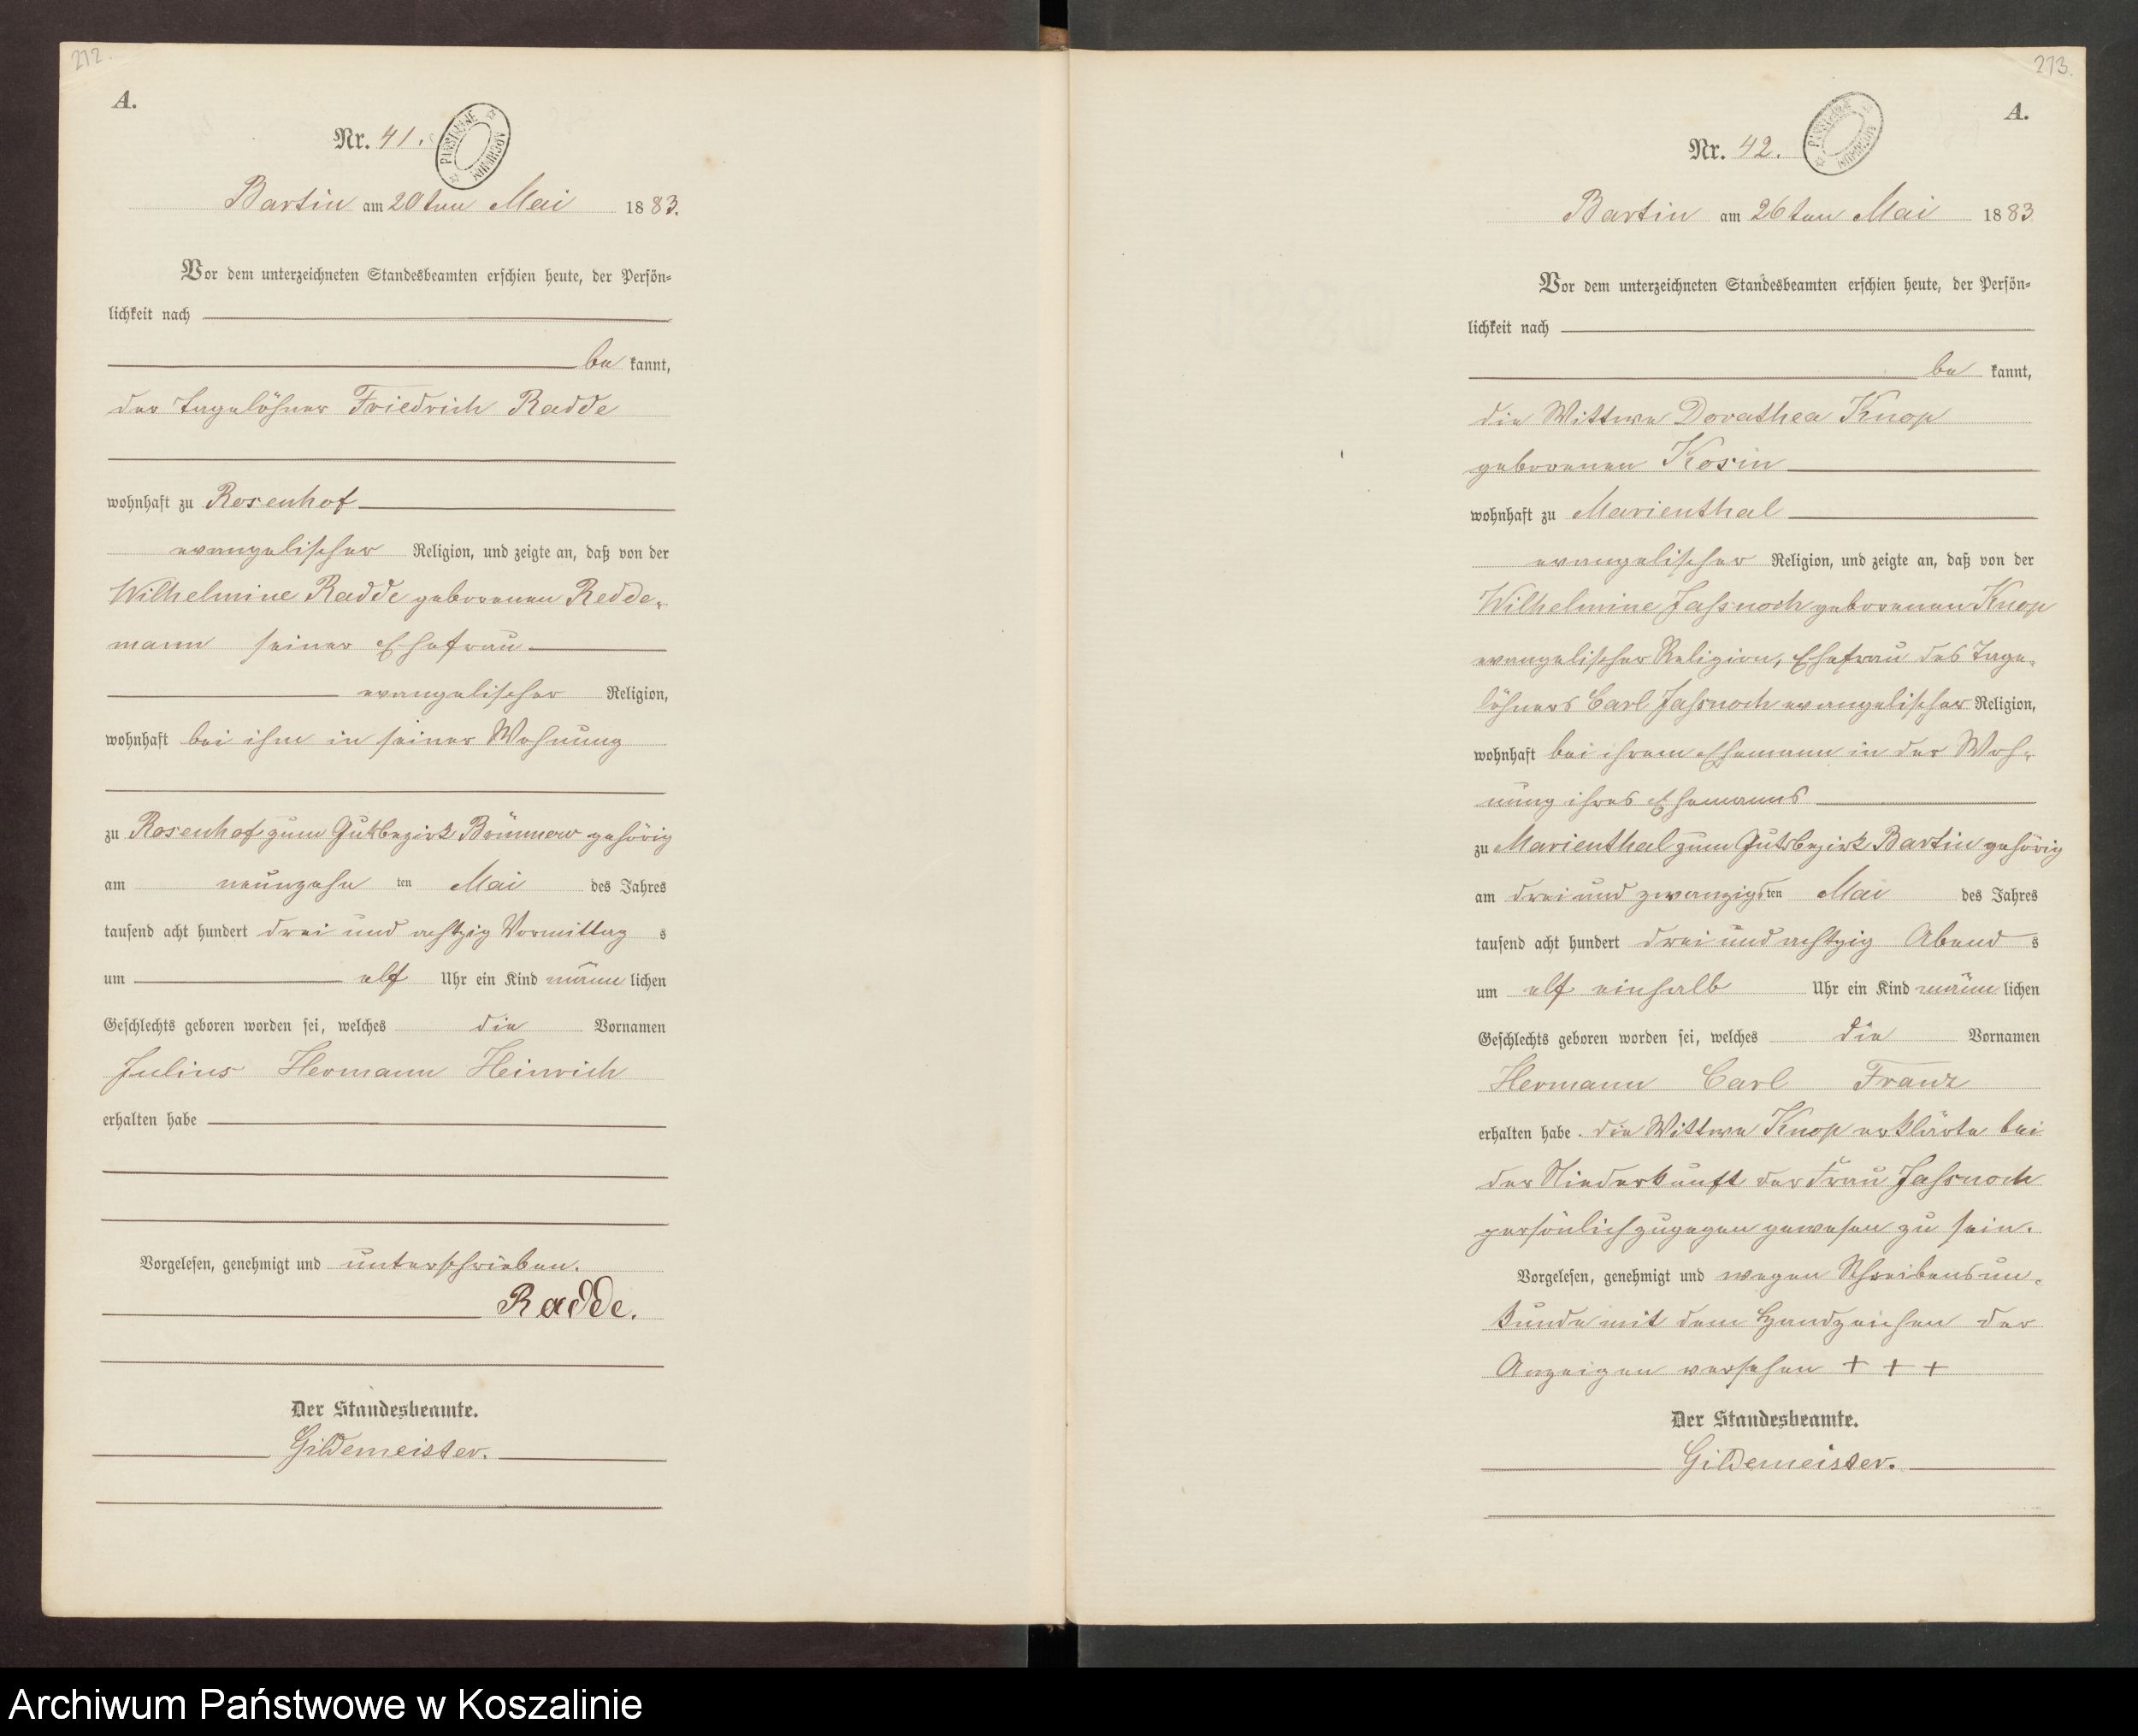 212.
A.
Nr. 41.
Bartin am 20ten Mai 1883.
Vor dem unterzeichneten Standesbeamten erschien heute, der Persön-
lichkeit nach
be kannt,
der Tagelöhner Friedrich Radde
wohnhaft zu Rosenhof
evangelischer Religion, und zeigte an, daß von der
Wilhelmine Radde geborenen Redde-
mann seiner Ehefrau
evangelischer Religion,
wohnhaft bei ihm in seiner Wohnung
zu Rosenhof zum Gutsbezirk Brünnow gehörig
am neunzehn ten Mai des Jahres
tausend acht hundert drei und achtzig Vormittag s
um elf Uhr ein Kind männ lichen
Geschlechts geboren worden sei, welches die Vornamen
Julius Hermann Heinrich
erhalten habe
Vorgelesen, genehmigt und unterschrieben.
Radde.
Der Standesbeamte.
Gildemeister.
213.
A.
Nr. 42.
Bartin am 26ten Mai 1883
Vor dem unterzeichneten Standesbeamten erschien heute, der Persön-
lichkeit nach
be kannt,
die Wittwe Dorathea Knop
geborenen Kosin
wohnhaft zu Marienthal
evangelischer Religion, und zeigte an, daß von der
Wilhelmine Jahsnoch geborenen Knop
evangelischer Religion, Ehefrau des Tage-
löhners Carl Jahsnoch evangelischer Religion,
wohnhaft bei ihrem Ehemann in der Woh-
nung ihres Ehemanns
zu Marienthal zum Gutsbezirk Bartin gehörig
am drei und zwanzigsten Mai des Jahres
tausend acht hundert drei und achtzig Abend s
um elf einhalb Uhr ein Kind männ lichen
Geschlechts geboren worden sei, welches die Vornamen
Hermann Carl Franz
erhalten habe. die Wittwe Knop erklärte bei
der Niederkunft der Frau Jahsnoch
persönlich zugegen gewesen zu sein.
Vorgelesen, genehmigt und wegen Schreibensun-
kunde mit dem Handzeichen der
Anzeigen versehen + + +
Der Standesbeamte.
Gildemeister.
Archiwum Państwowe w Koszalinie